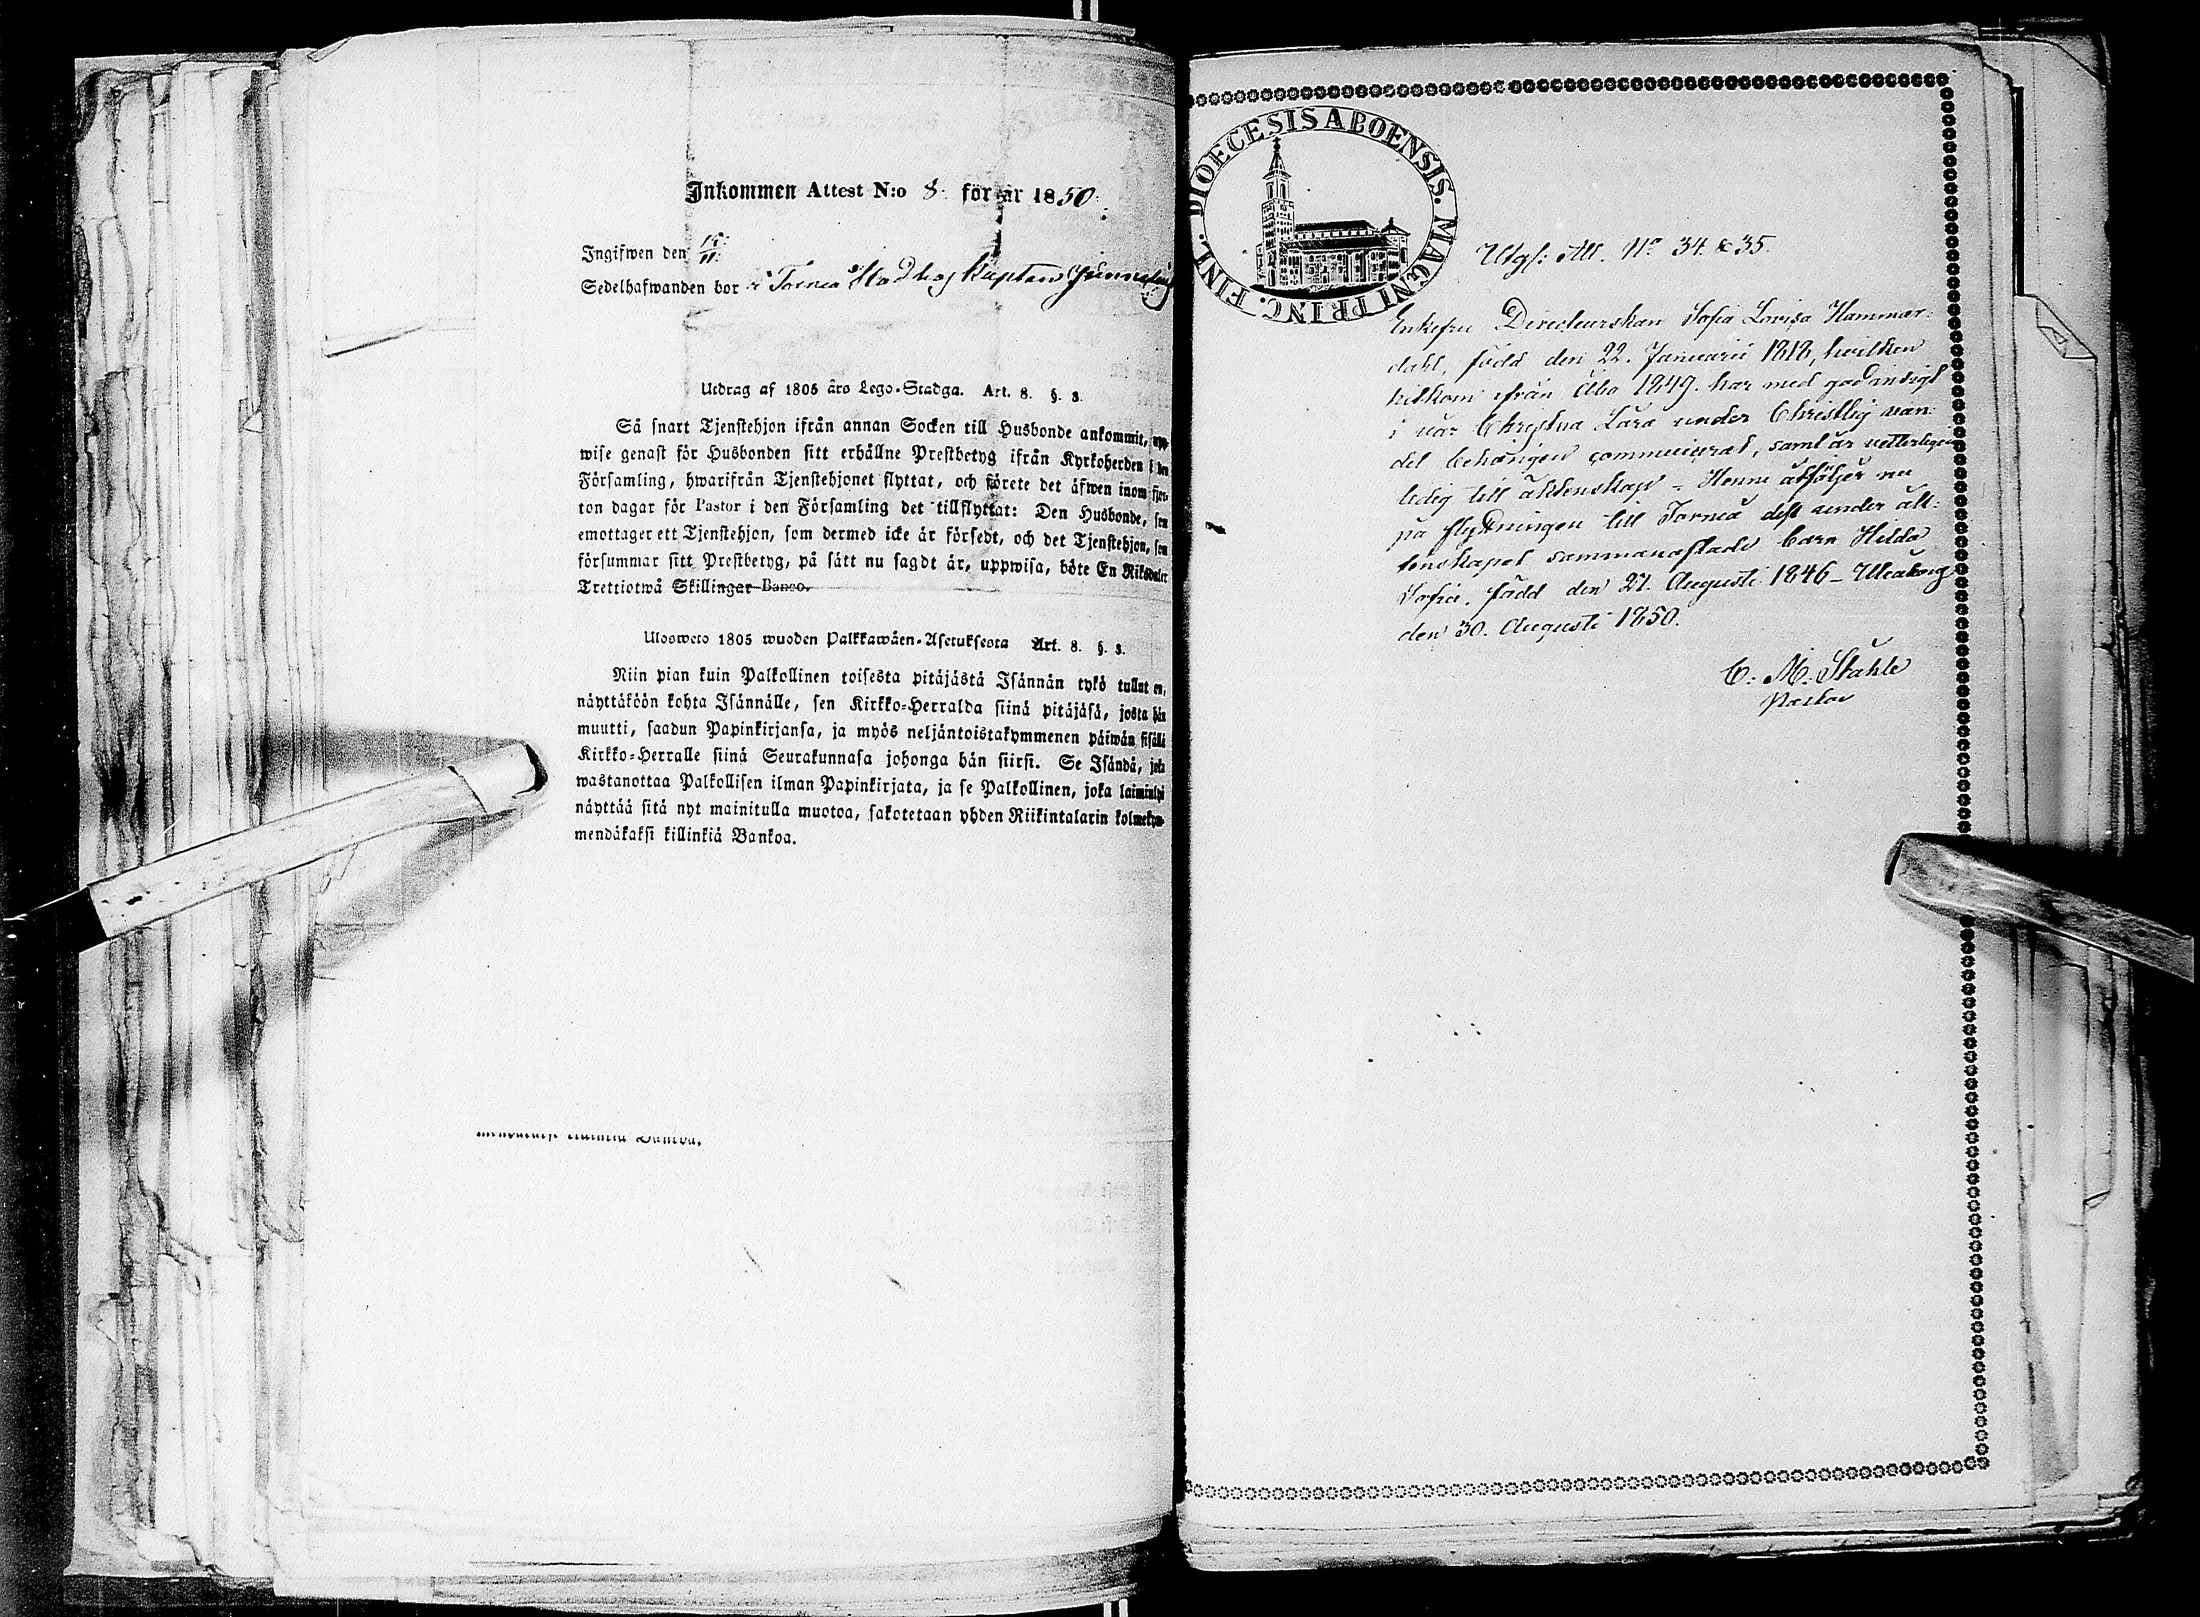 Inkommen Attest N:o 8 för år 1850.
Ingifwen den 15/11
Sedelhafwanden bor i Torneå Stad hos Kapten
Utdrag af 1805 års Lego-Stadga. Art. 8. §. 3.
Så snart Tjenstehjon ifrån annan Socken till Husbonde ankommit, upp-
wise genast för Husbonden sitt erhållne Prestbetyg ifrån Kyrkoherden i den
Församling, hwarifrån Tjenstehjonet flyttat, och förete det äfwen inom fjor-
ton dagar för Pastor i den Församling det tillflyttat: Den Husbonde, som
emottager ett Tjenstehjon, som dermed icke är försedt, och det Tjenstehjon, som
försummar sitt Prestbetyg, på sätt nu sagdt är, uppwisa, böte En Riksdaler
Trettiotwå Skillingar Banco.
Ulosweto 1805 wuoden Palkkawäen-Asetuksesta Art. 8. §. 3.
Niin pian kuin Palkollinen toisesta pitäjästä Isännän tykö tullut on,
näyttäköön kohta Isännälle, sen Kirkko-Herralda siinä pitäjäsä, josta hän
muutti, saadun Papinkirjansa, ja myös neljäntoistakymmenen päiwän sisällä
Kirkko-Herralle siinä Seurakunnasa johonga hän siirsi. Se Isändä, joka
wastanottaa Palkollisen ilman Papinkirjata, ja se Palkollinen, joka laiminlyö
näyttää sitä nyt mainitulla muotoa, sakotetaan yhden Riikintalarin kolmekym-
mendäkaksi killinkiä Bankoa.
DIOECESIS ABOENSIS. MAGNI PRINC. FINL.
Utgf: Att. No 34 & 35.
Enkefru Directeurskan Sofia Lovisa Hammar-
dahl, född den 22. Januarii 1818, hvilken
hitkom ifrån Åbo 1849. har med god insigt
i vår Christna Lära under Christlig van-
del behörigen communicerat, samt är vetterligen
ledig till äktenskap - Henne åtföljer nu
på flyttningen till Torneå dess under äk-
tenskapet sammanaflade barn Hilda
Sofia, född den 27. Augusti 1846 - Uleåborg
den 30. Augusti 1850.
C. M. Ståhle
Pastor